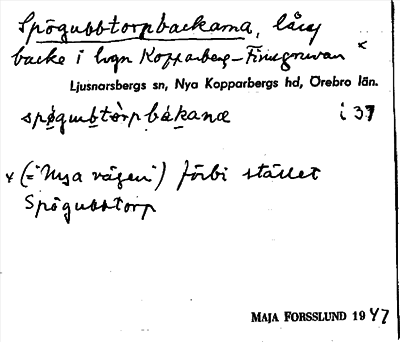 Spögubbtorpbackarna, lång
backe i lvgn Kopparberg–Finngruvan ×
Ljusnarsbergs sn, Nya Kopparbergs hd, Örebro län.
spögubtòrpbákanæ i 37
× (= "Nya vägen") förbi stället
Spögubbtorp
MAJA FORSSLUND 1947